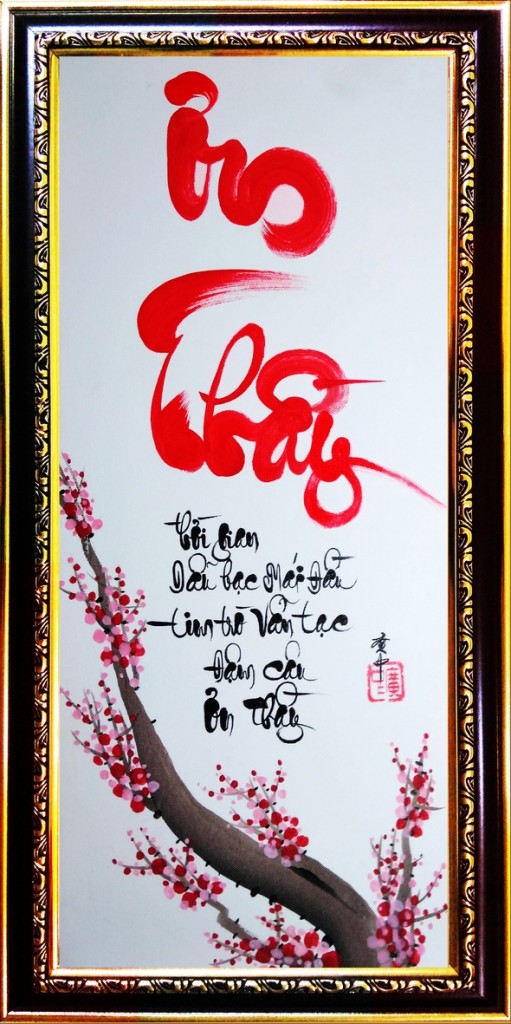 Ơn
Thầy
Thời gian
Dẫu bạc Mái Đầu
tim trò Vẫn tạc
Đậm câu
Ơn Thầy
黄中